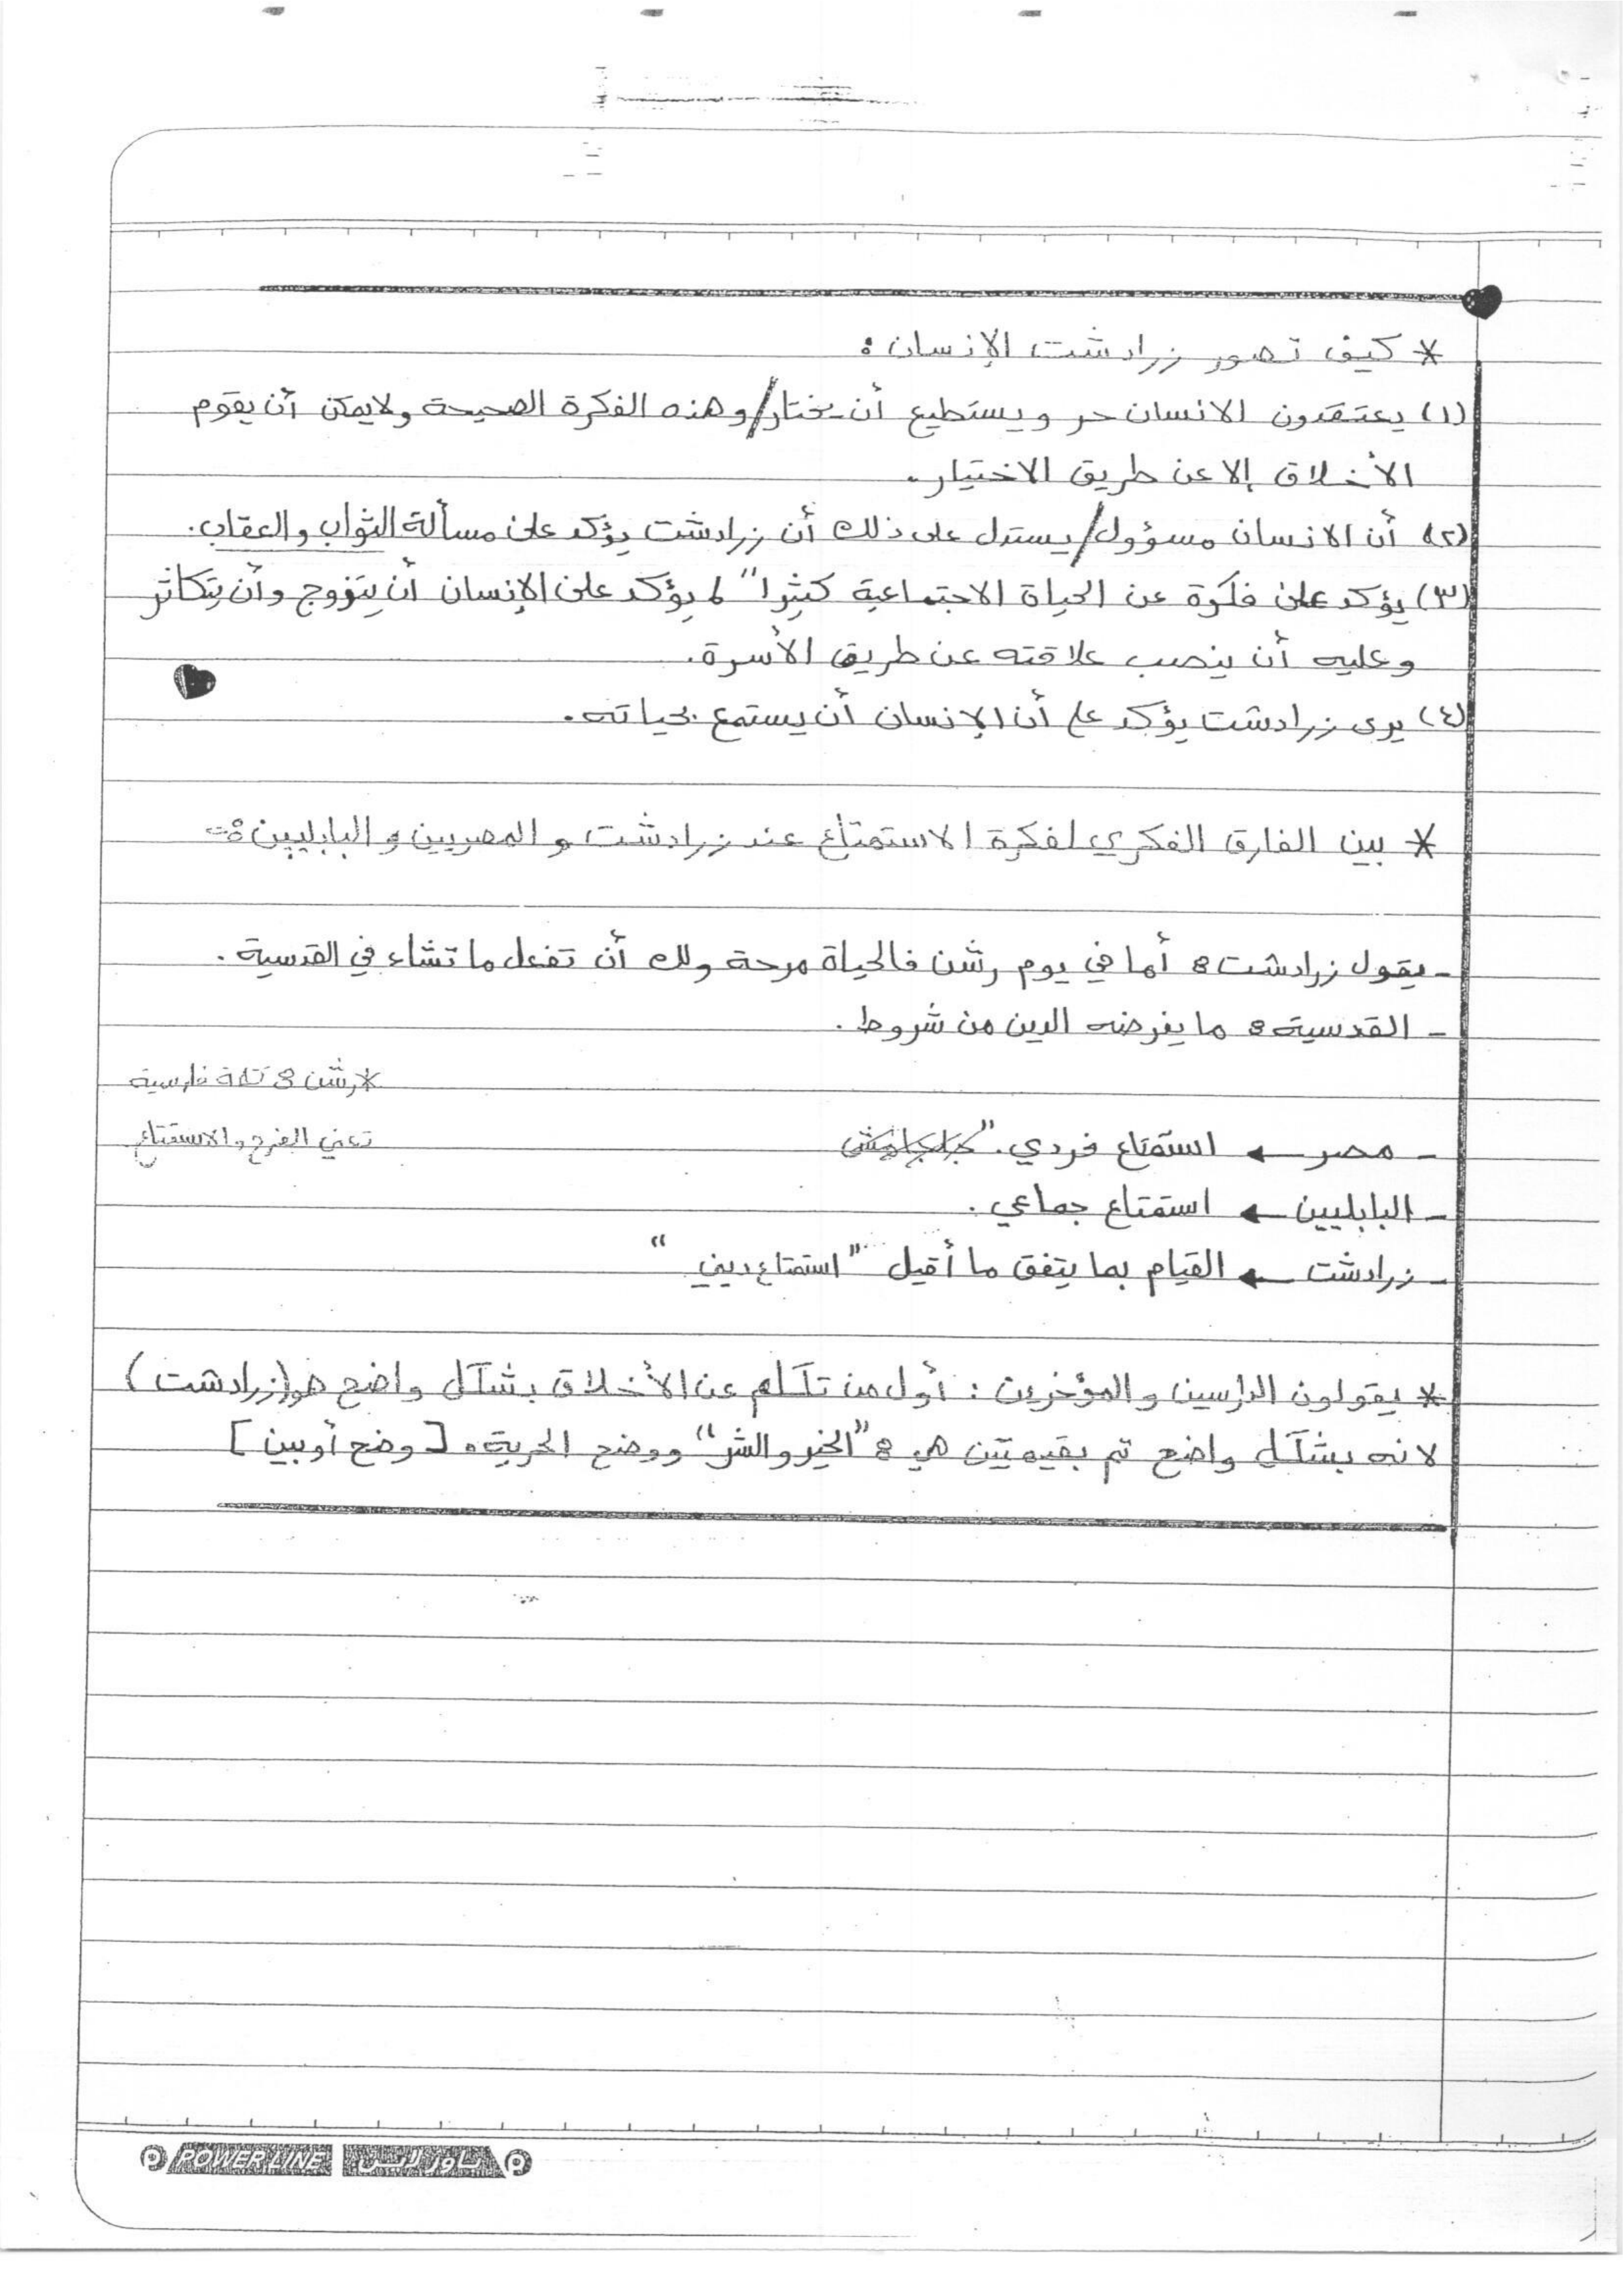 * كيف تصور زرادشت الإنسان :
(١) يعتقدون الانسان حر ويستطيع أن يختار/وهذه الفكرة الصحيحة ولا يمكن أن يقوم
الأخلاق إلا عن طريق الاختيار.
(٢) أن الانسان مسؤول/يستدل على ذلك أن زرادشت يؤكد على مسألة الثواب والعقاب.
(٣) يؤكد على فكرة عن الحياة الاجتماعية كثيرا" ، يؤكد على الإنسان أن يتزوج وأن يتكاثر
وعليه أن ينصب علاقته عن طريق الأسرة.
(٤) يرى زرادشت يؤكد على أن الإنسان أن يستمع بحياته.
* بين الفارق الفكري لفكرة الاستمتاع عند زرادشت و المصريين و البابليين :-
- يقول زرادشت : أما في يوم رشن فالحياة مرحة ولك أن تفعل ما تشاء في القدسية .
- القدسية : ما يفرضه الدين من شروط .
* رشن : كلمة فارسية
تعني الفرح والاستمتاع
- مصر ← استمتاع فردي .
- البابليين ← استمتاع جماعي .
- زرادشت ← القيام بما يتفق ما أقيل "استمتاع ديني "
* يقولون الدارسين والمؤخرين : أول من تكلم عن الأخلاق بشكل واضح هو(زرادشت)
لانه بشكل واضح تم بقيمتين هي : "الخير والشر" ووضح الحرية . [وضح أو بين]
POWER LINE باور لايـن